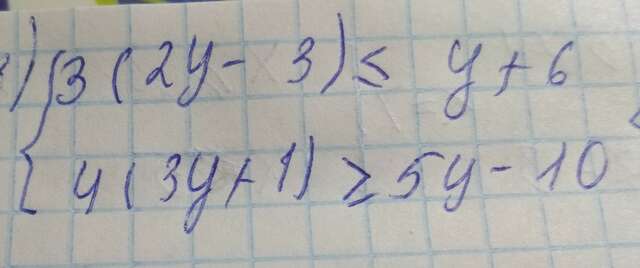 ) { 3 (2y - 3) ≤ y + 6
4 (3y + 1) ≥ 5y - 10